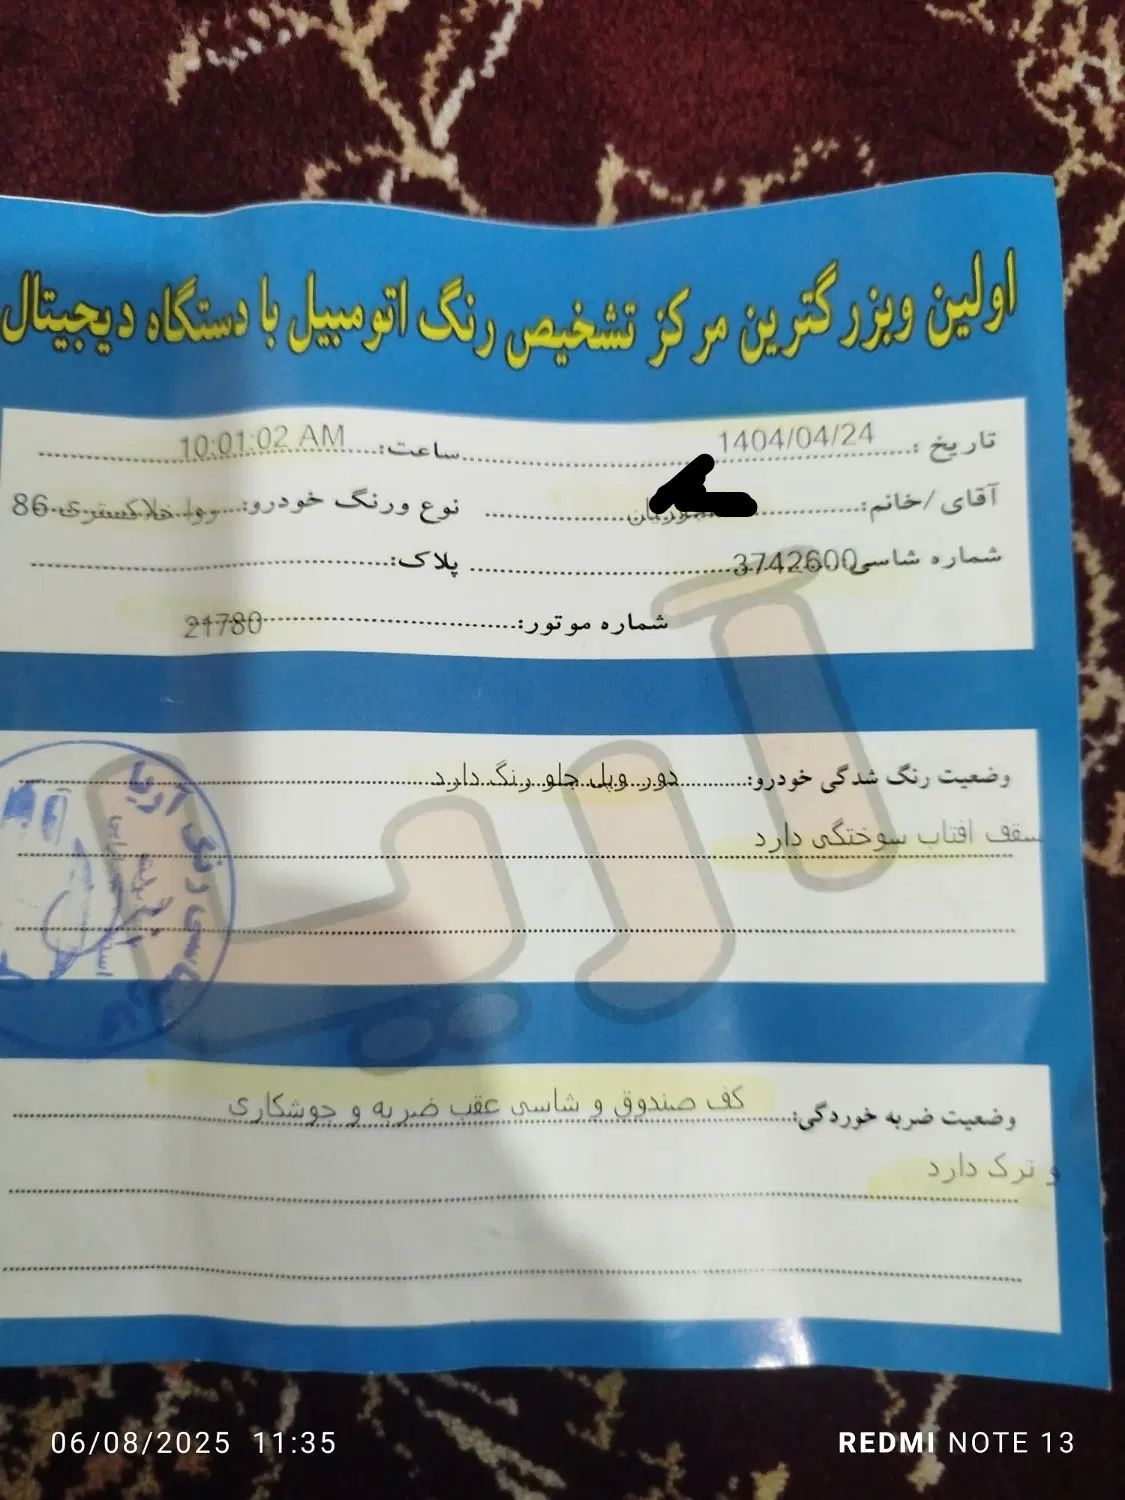 اولین وبزرگترین مرکز تشخیص رنگ اتومبیل با دستگاه دیجیتال
تاریخ: 1404/04/24 ساعت: 10:01:02 AM
آقای /خانم: نوع ورنگ خودرو: خاکستری 86
شماره شاسی 3742600 پلاک:
شماره موتور: 21780
وضعیت رنگ شدگی خودرو: دور وبل جلو رنگ دارد
سقف افتاب سوختگی دارد
وضعیت ضربه خوردگی: کف صندوق و شاسی عقب ضربه و جوشکاری
و ترک دارد
آریا
06/08/2025 11:35
REDMI NOTE 13